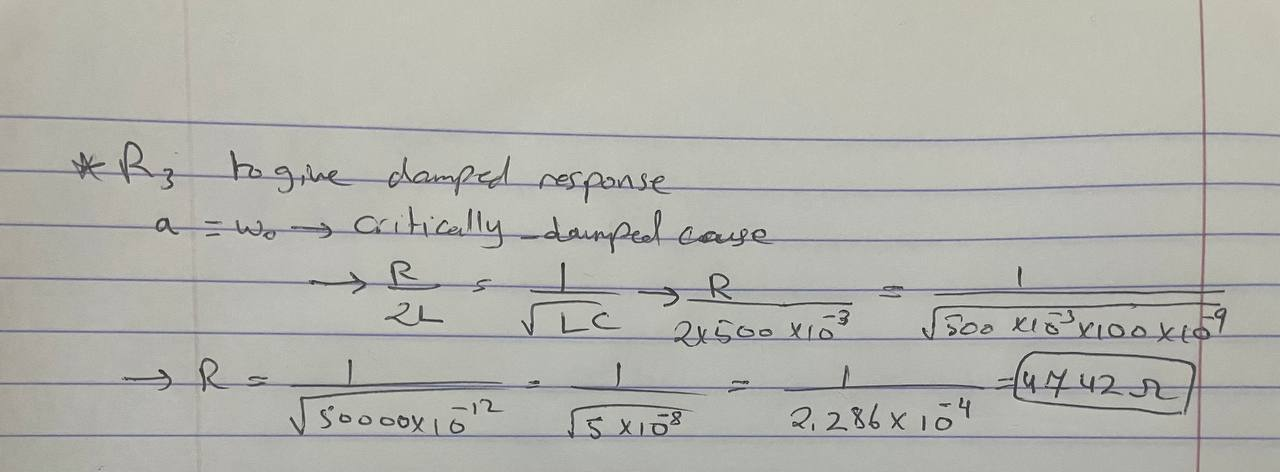 * R₃ to give damped response
a = ω₀ → Critically-damped cause
→ R/2L = 1/√LC → R/2×500×10⁻³ = 1/√500×10⁻³×100×10⁻⁹
→ R = 1/√50000×10⁻¹² = 1/√5×10⁻⁸ = 1/2.286×10⁻⁴ = 4742Ω